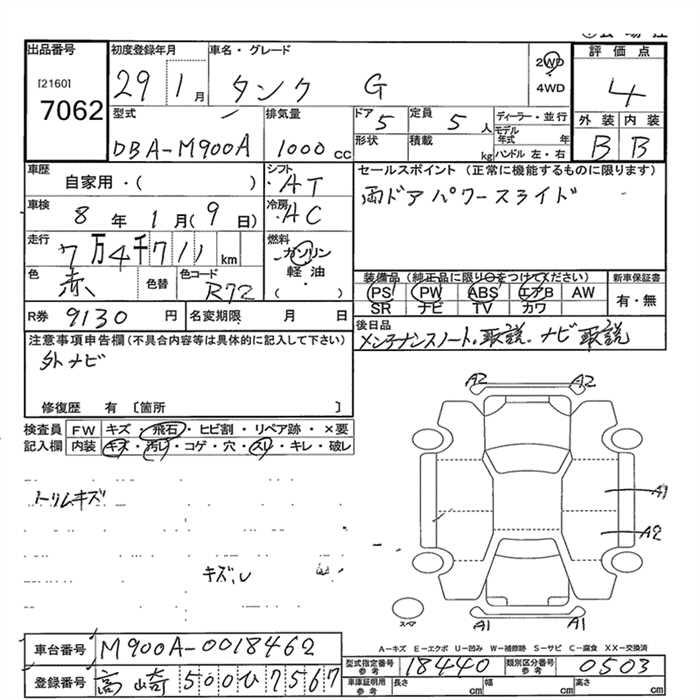 出品番号
[2160]
7062
初度登録年月
29 1月
車名・グレード
タンク G
2WD
4WD
評価点
4
外装 内装
B B
型式
DBA-M900A
排気量
1000 cc
ドア 5
形状
定員 5 人
積載 kg
ディーラー・並行
モデル年式 年
ハンドル 左・右
車歴
自家用・( )
シフト
・AT
車検
8年 1月(9日)
冷房
・AC
走行
7万4千711 km
燃料
ガソリン
軽油・
( )
色
赤
色替
色コード
R72
セールスポイント (正常に機能するものに限ります)
両ドアパワースライド
装備品 (純正品に限り○をつけてください)
PS PW ABS エアB AW
SR ナビ TV カワ
新車保証書
有・無
R券 9130 円
名変期限 月 日
後日品
メンテナンスノート。取説。ナビ取説
注意事項申告欄(不具合内容等は具体的に記入して下さい)
外ナビ
修復歴 有 [箇所 ]
検査員記入欄
FW キズ・飛石・ヒビ割・リペア跡・×要
内装 キズ・汚レ・コゲ・穴・スレ・キレ・破レ
トリムキズ
キズ、U
A2 A2
A1
A2
A1 A1
スペア
A-キズ E-エクボ U-凹み W-補修跡 S-サビ C-腐食 XX-交換済
車台番号 M900A-0018462
登録番号 高崎 500 ひ 7567
型式指定番号 参考 18440
類別区分番号 参考 0503
車庫証明用 参考 長さ cm 幅 cm 高さ cm